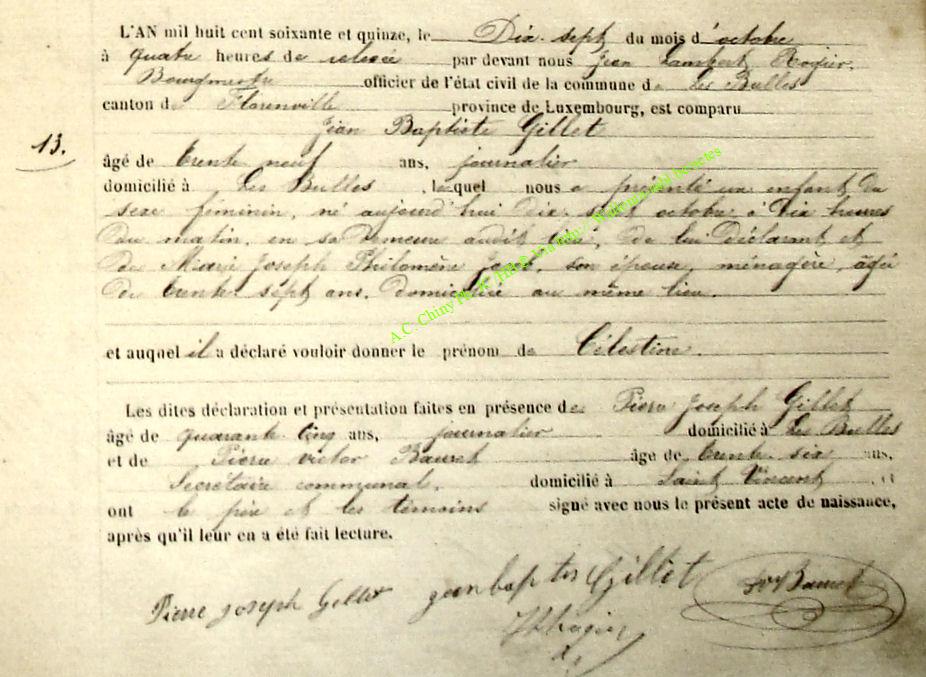 L'AN mil huit cent soixante et quinze, le Dix-sept du mois d'octobre
à quatre heures de relevée par devant nous Jean Lambert
Bourgmestre officier de l'état civil de la commune de Les Bulles
canton de Florenville province de Luxembourg, est comparu
Jean Baptiste Gillet
13.
âgé de trente neuf ans, journalier
domicilié à Les Bulles, lequel nous a présenté un enfant du
sexe féminin, né aujourd'hui dix-sept octobre à Dix heures
du matin, en sa demeure audit lieu, de lui Déclarant et
de Marie Joseph Philomène son épouse, ménagère, âgée
de trente sept ans, domiciliée au même lieu.
et auquel il a déclaré vouloir donner le prénom de Célestine.
Les dites déclaration et présentation faites en présence de Pierre Joseph Gillet
âgé de quarante cinq ans, journalier domicilié à Les Bulles
et de Pierre Victor Bauret âgé de trente six ans,
Secrétaire communal, domicilié à Saint Vincent et
ont le père et les témoins signé avec nous le présent acte de naissance,
après qu'il leur en a été fait lecture.
Pierre Joseph Gillet jean baptis Gillet Bauret
A.C. Chiny